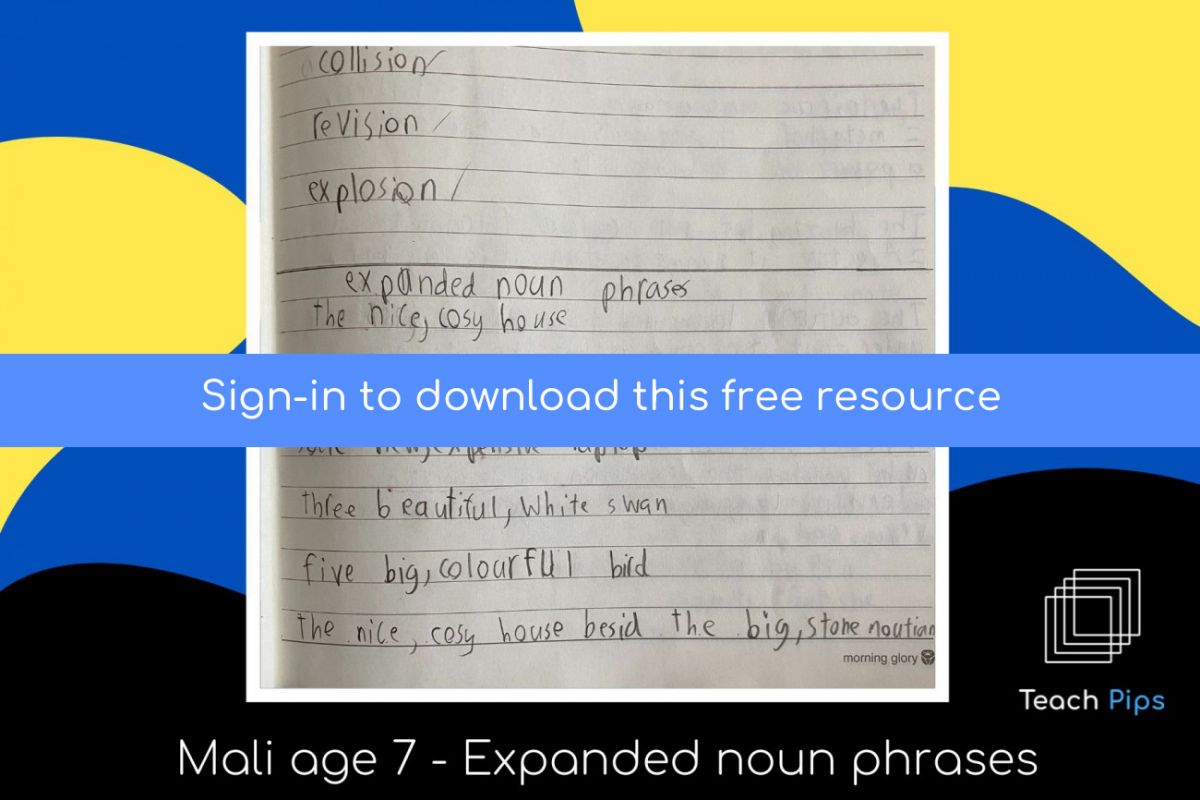 collision
revision
explosion
expanded noun phrases
the nice, cosy house
Sign-in to download this free resource
new, expensive laptop
three beautiful, white swan
five big, colourful bird
the nice, cosy house besid the big, stone moutian
morning glory
Teach Pips
Mali age 7 - Expanded noun phrases